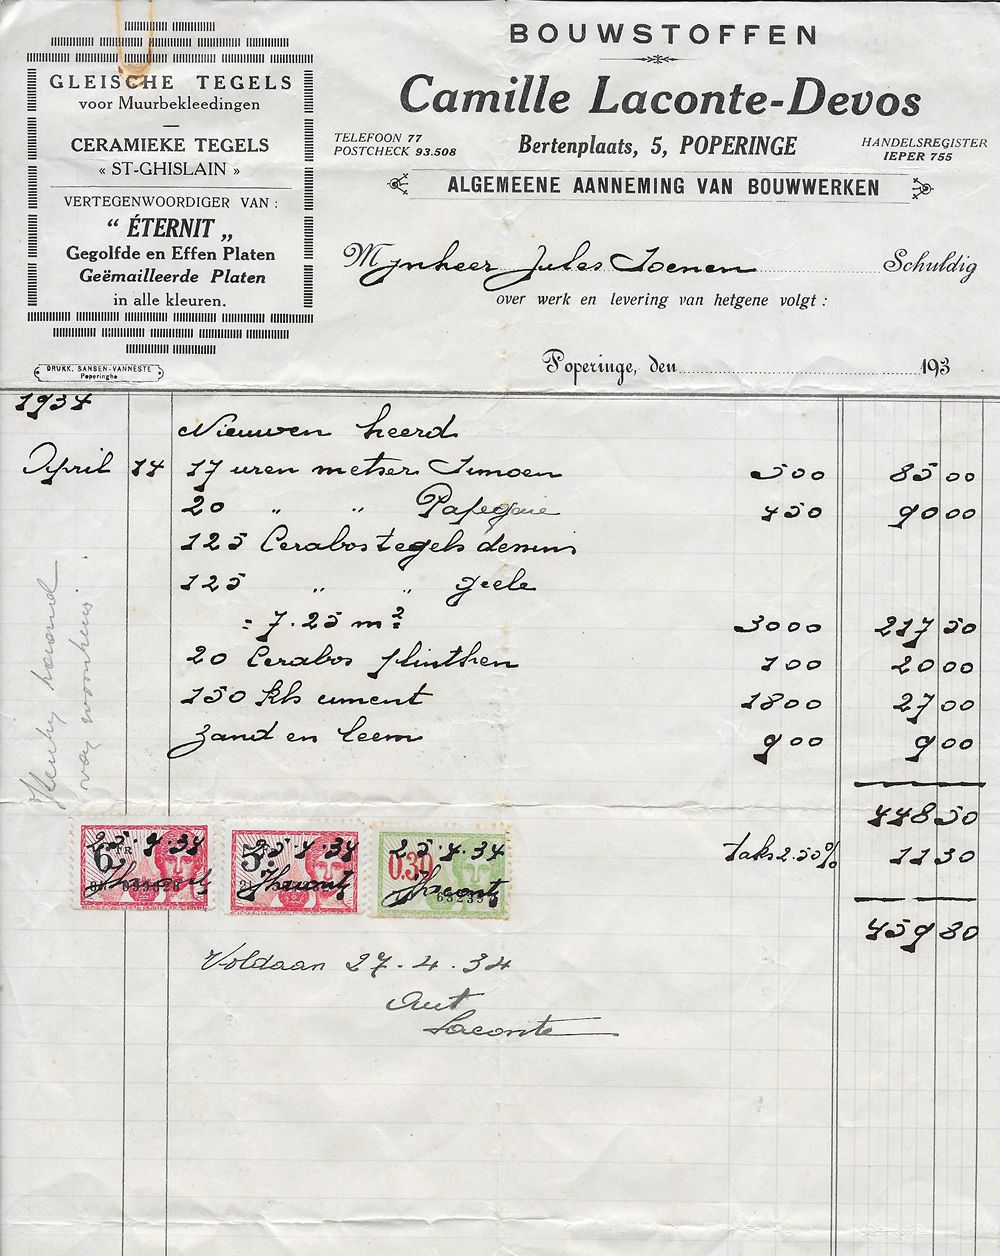 GLEISCHE TEGELS
voor Muurbekleedingen
CERAMIEKE TEGELS
« ST-GHISLAIN »
VERTEGENWOORDIGER VAN :
“ ÉTERNIT „
Gegolfde en Effen Platen
Geëmailleerde Platen
in alle kleuren.
DRUKK. SANSEN-VANNESTE
Poperinghe
BOUWSTOFFEN
Camille Laconte-Devos
TELEFOON 77
POSTCHECK 93.508
Bertenplaats, 5, POPERINGE
HANDELSREGISTER
IEPER 755
ALGEMEENE AANNEMING VAN BOUWWERKEN
Mynheer Jules Toenen Schuldig
over werk en levering van hetgene volgt :
Poperinge, den 193
1934
Nieuwen heerd
April 14 17 uren metser Simoen 5 00 85 00
20 " " Papegaie 4 50 90 00
125 Cerabostegels
125 " " geele
= 7.25 m² 30 00 217 50
20 Cerabos plinthen 1 00 20 00
150 kls ciment 18 00 27 00
Zand en leem 9 00 9 00
448 50
taks 2.50% 11 30
459 80
6 FR 25.4.34 Laconte
5 25.4.34 Laconte
0.30 25.4.34 Laconte
Voldaan 27.4.34
Laconte